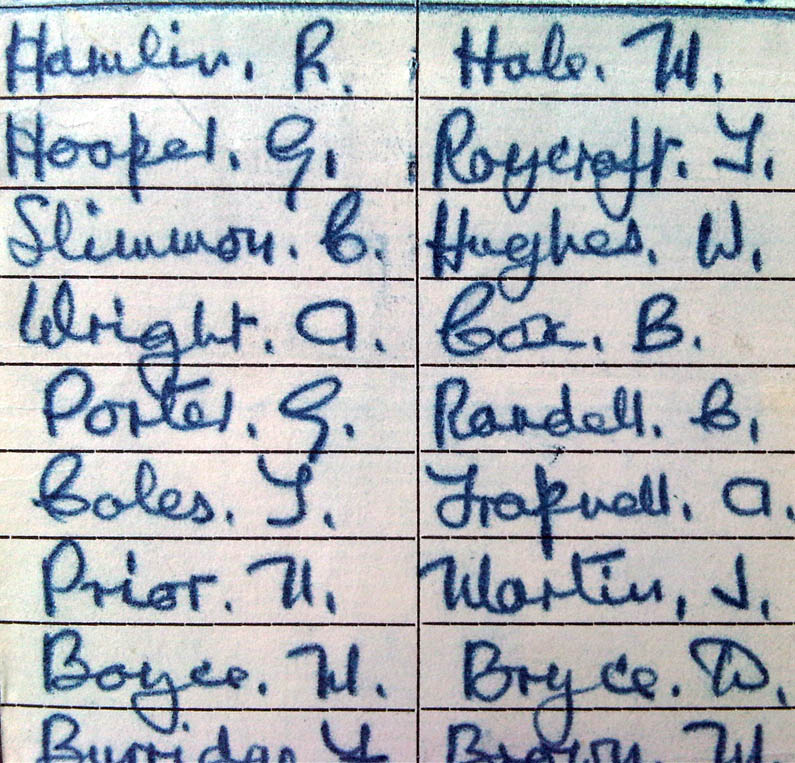 Hamlin. R. Hale. M.
Hooper. G. Roycroft. T.
Slimmon. C. Hughes. W.
Wright. A. Cox. B.
Porter. G. Randell. C.
Coles. T. Trapnell. A.
Prior. N. Martin, J.
Boyce. M. Bryce. D.
Burridge Brown. M.